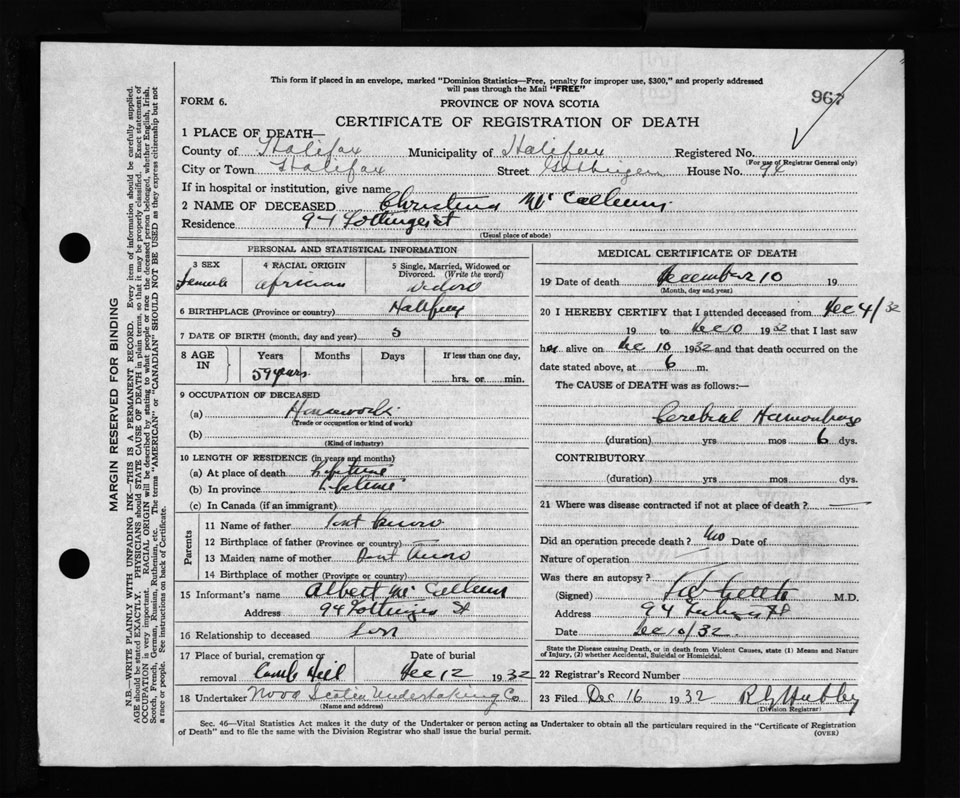 This form if placed in an envelope, marked "Dominion Statistics—Free, penalty for improper use, $300," and properly addressed
will pass through the Mail "FREE"
967
FORM 6.
PROVINCE OF NOVA SCOTIA
CERTIFICATE OF REGISTRATION OF DEATH
1 PLACE OF DEATH—
County of Halifax Municipality of Halifax Registered No.
(For use of Registrar General only)
City or Town Halifax Street Gottingen House No. 94
If in hospital or institution, give name
2 NAME OF DECEASED Christina Mc Callum
Residence 94 Gottingen St
(Usual place of abode)
PERSONAL AND STATISTICAL INFORMATION
3 SEX 4 RACIAL ORIGIN 5 Single, Married, Widowed or
Divorced. (Write the word)
Female African
6 BIRTHPLACE (Province or country) Halifax
7 DATE OF BIRTH (month, day and year)
8 AGE IN Years Months Days If less than one day,
59 years hrs. or min.
9 OCCUPATION OF DECEASED
(a) Housework
(Trade or occupation or kind of work)
(b)
(Kind of industry)
10 LENGTH OF RESIDENCE (in years and months)
(a) At place of death Lifetime
(b) In province Lifetime
(c) In Canada (if an immigrant)
Parents
11 Name of father
12 Birthplace of father (Province or country)
13 Maiden name of mother
14 Birthplace of mother (Province or country)
15 Informant's name Albert Mc Callum
Address 94 Gottingen St
16 Relationship to deceased Son
17 Place of burial, cremation or Date of burial
removal Camp Hill Dec 12 1932
18 Undertaker Nova Scotia Undertaking Co
(Name and address)
MEDICAL CERTIFICATE OF DEATH
19 Date of death December 10 19
(Month, day and year)
20 I HEREBY CERTIFY that I attended deceased from Dec 4/32
19 to Dec 10 1932 that I last saw
her alive on Dec 10 1932 and that death occurred on the
date stated above, at 6 m.
The CAUSE of DEATH was as follows:—
Cerebral Hemorrhage
(duration) yrs mos 6 dys.
CONTRIBUTORY
(duration) yrs mos dys.
21 Where was disease contracted if not at place of death?
Did an operation precede death? No Date of
Nature of operation
Was there an autopsy?
(Signed) M.D.
Address 94
Date Dec 10/32
State the Disease causing Death, or in death from Violent Causes, state (1) Means and Nature
of Injury, (2) whether Accidental, Suicidal or Homicidal.
22 Registrar's Record Number
23 Filed Dec 16 1932
(Division Registrar)
Sec. 46—Vital Statistics Act makes it the duty of the Undertaker or person acting as Undertaker to obtain all the particulars required in the "Certificate of Registration
of Death" and to file the same with the Division Registrar who shall issue the burial permit. (OVER)
MARGIN RESERVED FOR BINDING
N.B.—WRITE PLAINLY WITH UNFADING INK—THIS IS A PERMANENT RECORD. Every item of information should be carefully supplied.
AGE should be stated EXACTLY. PHYSICIANS should STATE CAUSE OF DEATH in plain terms, so that it may be properly classified. Exact statement of
OCCUPATION is very important. RACIAL ORIGIN will be described by stating to what people or race the deceased person belonged, whether English, Irish,
Scotch, French, German, Russian, Ruthenian, etc. The terms "AMERICAN" or "CANADIAN" SHOULD NOT BE USED as they express citizenship but not
a race or people. See instructions on back of Certificate.